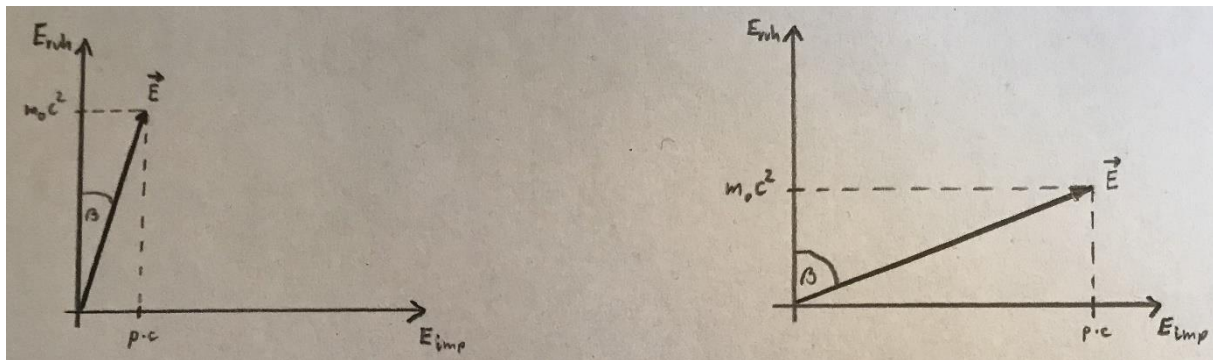 E_ruh
E⃗
m₀c²
β
p·c
E_imp
E_ruh
E⃗
m₀c²
β
p·c
E_imp